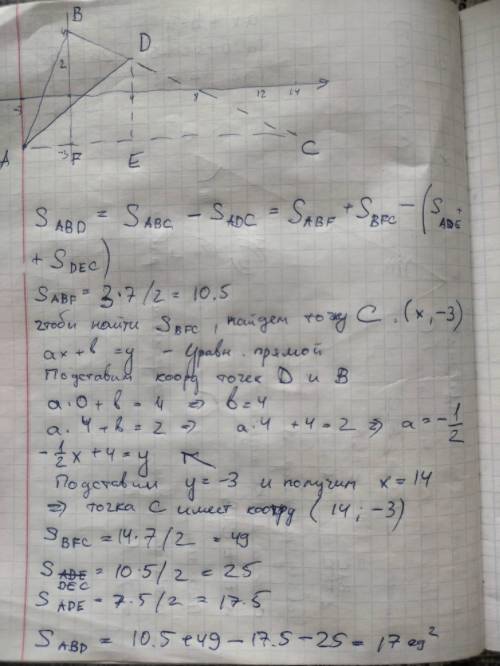 B
4
D
2
-3
4
8
12 14
A
-3
F
E
C
S_ABD = S_ABC - S_ADC = S_ABF + S_BFC - (S_ADE +
+ S_DEC)
S_ABF = 3·7/2 = 10.5
чтоби найти S_BFC, найдем точу C. (x, -3)
ax + b = y - Уравн. прямой
Подставим коорд точек D и B
a·0 + b = 4 ⇒ b = 4
a·4 + b = 2 ⇒ a·4 + 4 = 2 ⇒ a = -1/2
-1/2 x + 4 = y
Подставим y = -3 и получим x = 14
⇒ точка C имеет коорд (14; -3)
S_BFC = 14·7/2 = 49
S_DEC = 10·5/2 = 25
S_ADE = 7·5/2 = 17.5
S_ABD = 10.5 + 49 - 17.5 - 25 = 17 ед²